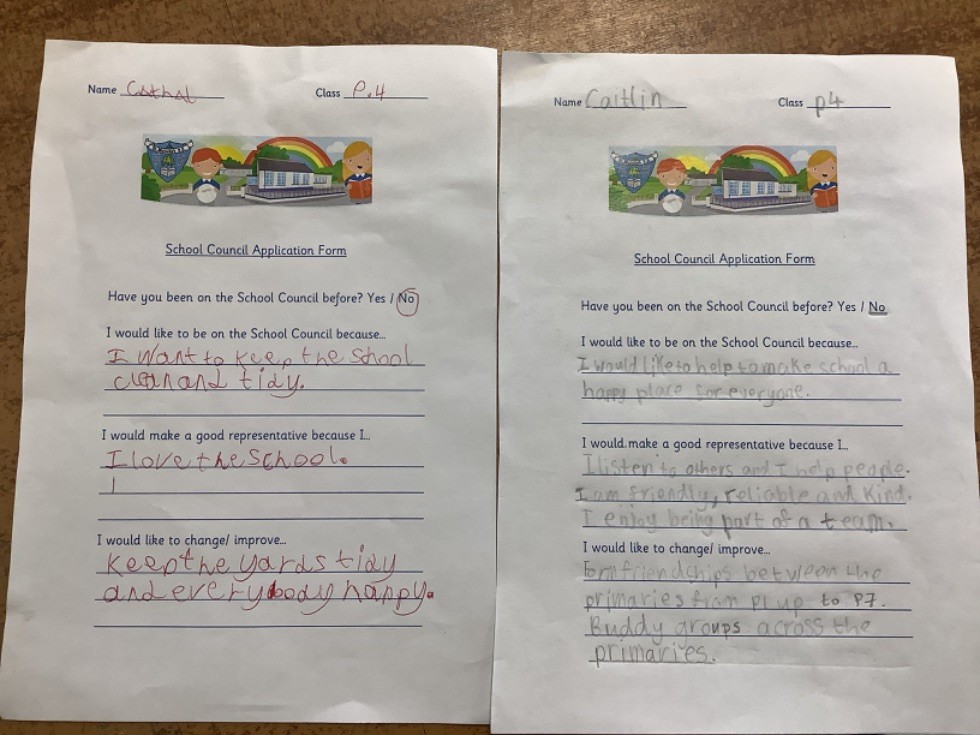 Name Cathal Class P.4
School Council Application Form
Have you been on the School Council before? Yes / No
I would like to be on the School Council because...
I want to keep the school
clean and tidy.
I would make a good representative because I...
I love the school.
I would like to change/ improve...
Keep the yards tidy
and everybody happy.
Name Caitlin Class p4
School Council Application Form
Have you been on the School Council before? Yes / No
I would like to be on the School Council because...
I would like to help to make school a
happy place for everyone.
I would make a good representative because I...
I listen to others and I help people.
I am friendly, reliable and kind.
I enjoy being part of a team.
I would like to change/ improve...
Form friendchips between the
primaries from p1 up to P7.
Buddy groups across the
primaries.